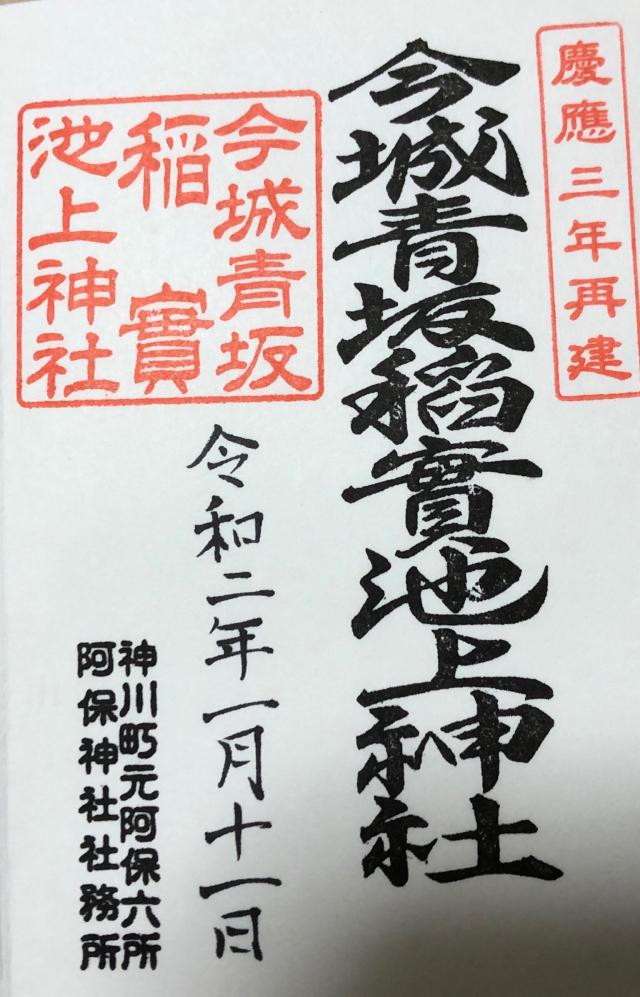 慶應三年再建
今城青坂稲實池上神社
今城青坂
稲實
池上神社
令和二年一月十一日
神川町元阿保六所
阿保神社社務所